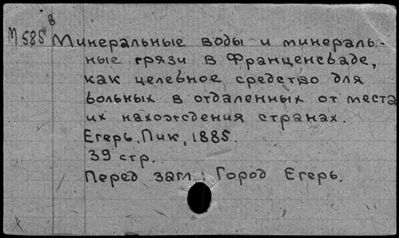 М 585 в
Минеральные воды и минераль-
ные грязи в Франценсбаде,
как целебное средство для
больных в отдаленных от места
их нахождения странах.
Егерь, Пик, 1885.
39 стр.
Перед загл.: Город Егерь.